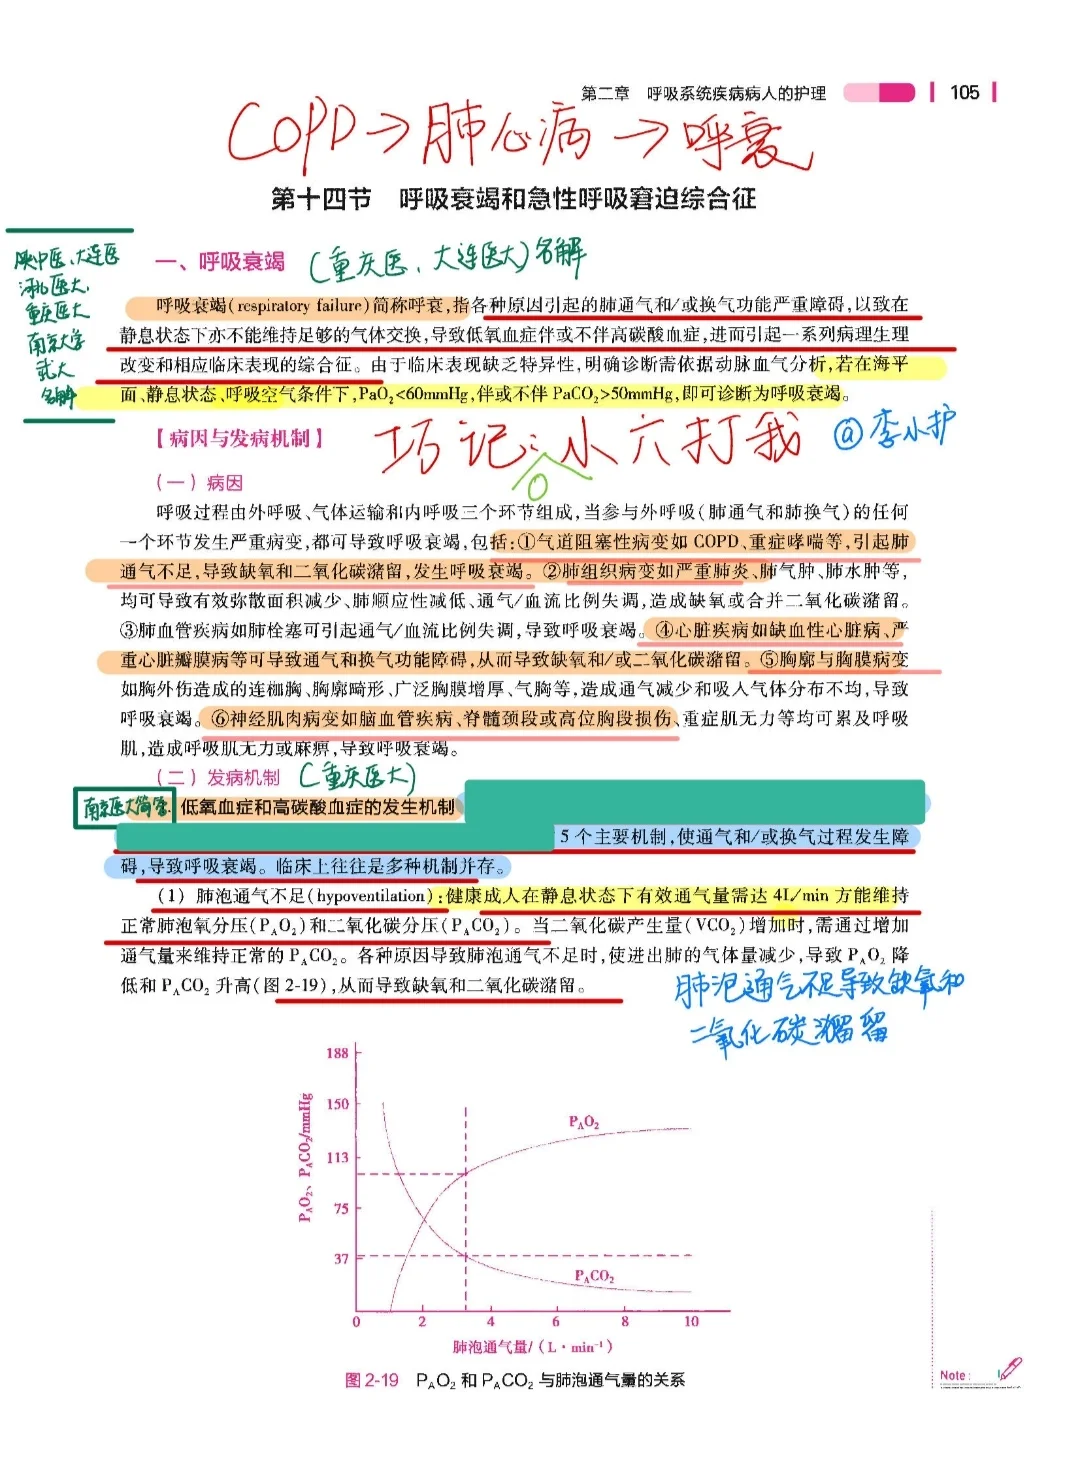 第二章 呼吸系统疾病病人的护理 105
COPD→肺心病→呼衰
第十四节 呼吸衰竭和急性呼吸窘迫综合征
陕中医、大连医
河北医大
重庆医大
南京大学
武大
名解
一、呼吸衰竭 (重庆医、大连医大)名解
呼吸衰竭(respiratory failure)简称呼衰,指各种原因引起的肺通气和/或换气功能严重障碍,以致在
静息状态下亦不能维持足够的气体交换,导致低氧血症伴或不伴高碳酸血症,进而引起一系列病理生理
改变和相应临床表现的综合征。由于临床表现缺乏特异性,明确诊断需依据动脉血气分析,若在海平
面、静息状态、呼吸空气条件下,PaO₂<60mmHg,伴或不伴 PaCO₂>50mmHg,即可诊断为呼吸衰竭。
【病因与发病机制】 巧记:小六打我 @李小护
O
(一)病因
呼吸过程由外呼吸、气体运输和内呼吸三个环节组成,当参与外呼吸(肺通气和肺换气)的任何
一个环节发生严重病变,都可导致呼吸衰竭,包括:①气道阻塞性病变如 COPD、重症哮喘等,引起肺
通气不足,导致缺氧和二氧化碳潴留,发生呼吸衰竭。②肺组织病变如严重肺炎、肺气肿、肺水肿等,
均可导致有效弥散面积减少、肺顺应性减低、通气/血流比例失调,造成缺氧或合并二氧化碳潴留。
③肺血管疾病如肺栓塞可引起通气/血流比例失调,导致呼吸衰竭。④心脏疾病如缺血性心脏病、严
重心脏瓣膜病等可导致通气和换气功能障碍,从而导致缺氧和/或二氧化碳潴留。⑤胸廓与胸膜病变
如胸外伤造成的连枷胸、胸廓畸形、广泛胸膜增厚、气胸等,造成通气减少和吸入气体分布不均,导致
呼吸衰竭。⑥神经肌肉病变如脑血管疾病、脊髓颈段或高位胸段损伤、重症肌无力等均可累及呼吸
肌,造成呼吸肌无力或麻痹,导致呼吸衰竭。
(二)发病机制 (重庆医大)
南京医大简答 . 低氧血症和高碳酸血症的发生机制
5 个主要机制,使通气和/或换气过程发生障
碍,导致呼吸衰竭。临床上往往是多种机制并存。
(1) 肺泡通气不足(hypoventilation):健康成人在静息状态下有效通气量需达 4L/min 方能维持
正常肺泡氧分压(P_AO₂)和二氧化碳分压(P_ACO₂)。当二氧化碳产生量(VCO₂)增加时,需通过增加
通气量来维持正常的 P_ACO₂。各种原因导致肺泡通气不足时,使进出肺的气体量减少,导致 P_AO₂ 降
低和 P_ACO₂ 升高(图 2-19),从而导致缺氧和二氧化碳潴留。
肺泡通气不足导致缺氧和
二氧化碳潴留
P_AO₂、P_ACO₂/mmHg
188
150
113
75
37
P_AO₂
P_ACO₂
0 2 4 6 8 10
肺泡通气量/(L·min⁻¹)
图 2-19 P_AO₂ 和 P_ACO₂ 与肺泡通气量的关系
Note: